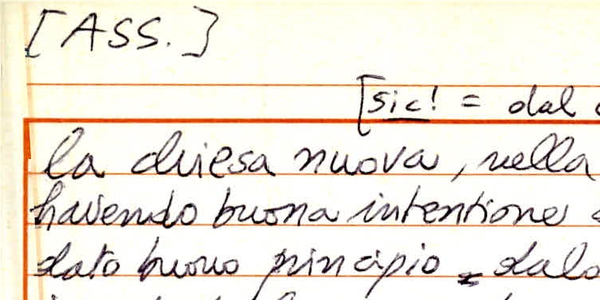 [ASS.]
[sic! = dal
la chiesa nuova, nella
havendo buona intentione
dato buono principio = dalo